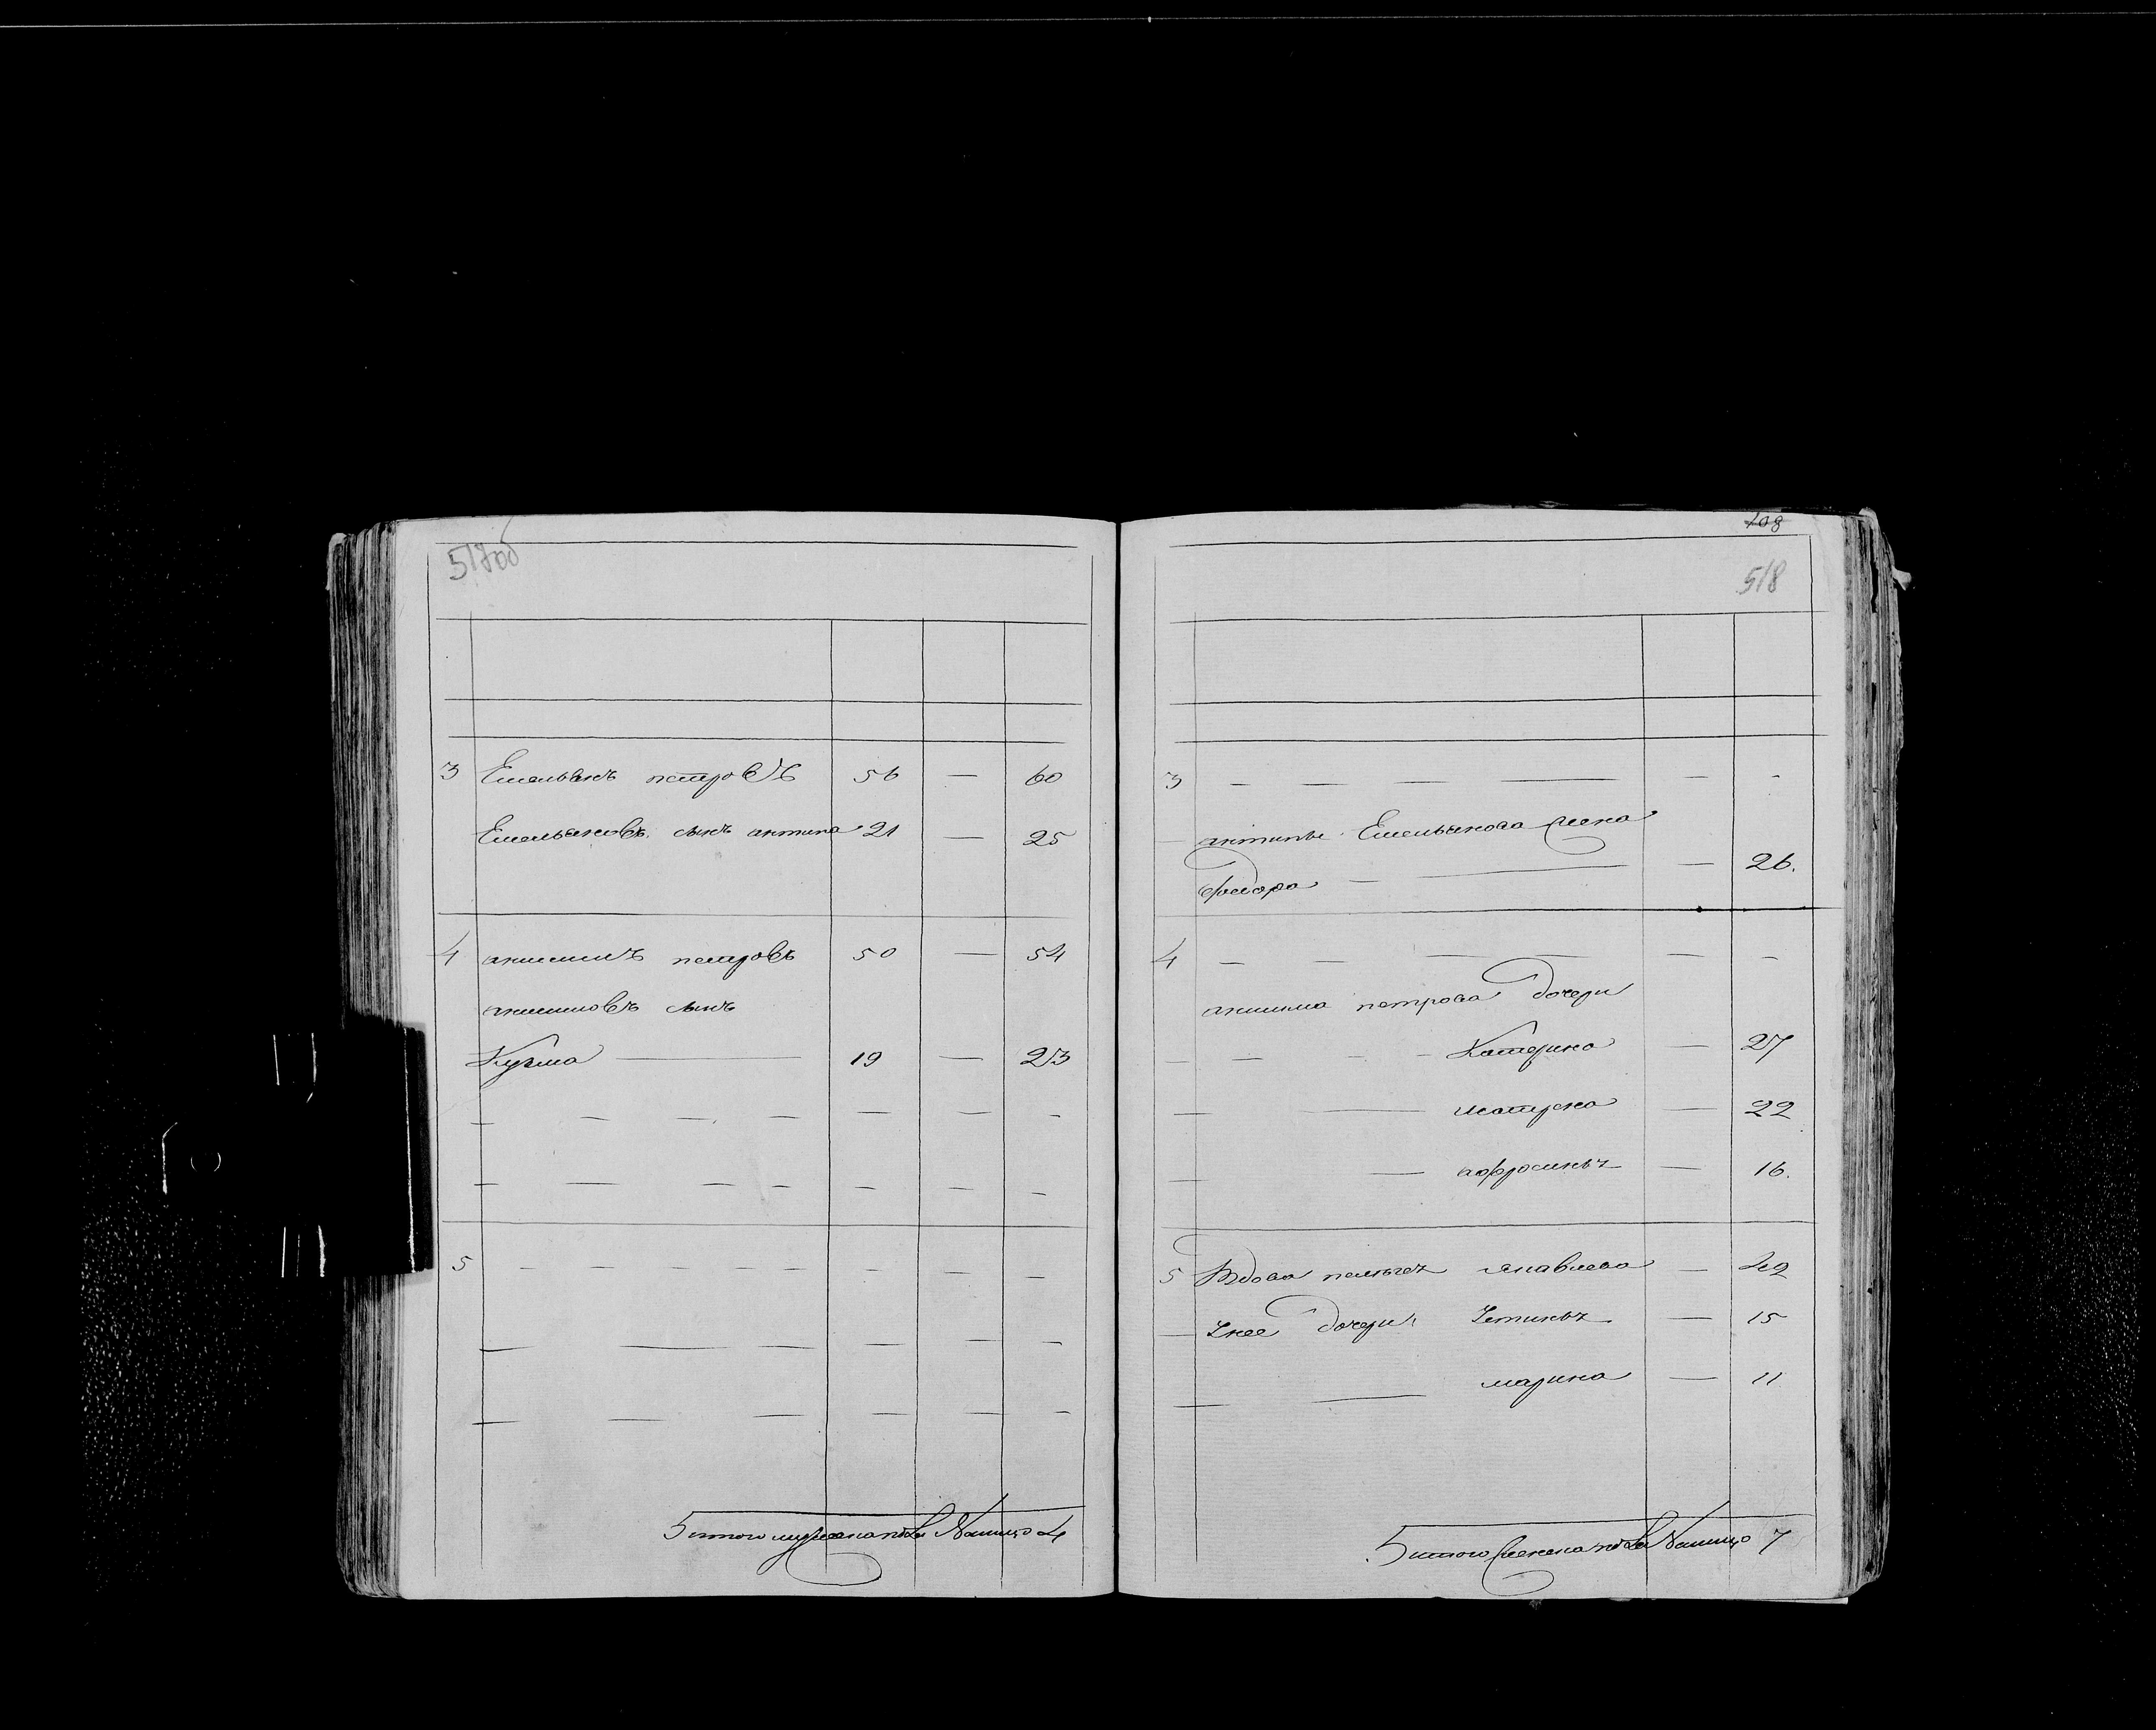 517об
3 Емельянъ петровъ 56 — 60
Емельяновъ сынъ антипа 21 — 25
4 акимъ петровъ 50 — 54
акимовъ сынъ
Кузма — 19 — 23
5
итого мужеска пола налицо 4
108
518
3
антипы Емельянова жена
федора — 26.
4
акима петрова дочери
Катерина — 27
матрена — 22
афросинья — 16.
5 Вдова яковлева — 49
Унее дочери Устинья — 15
марина — 11
итого женска пола налицо 7